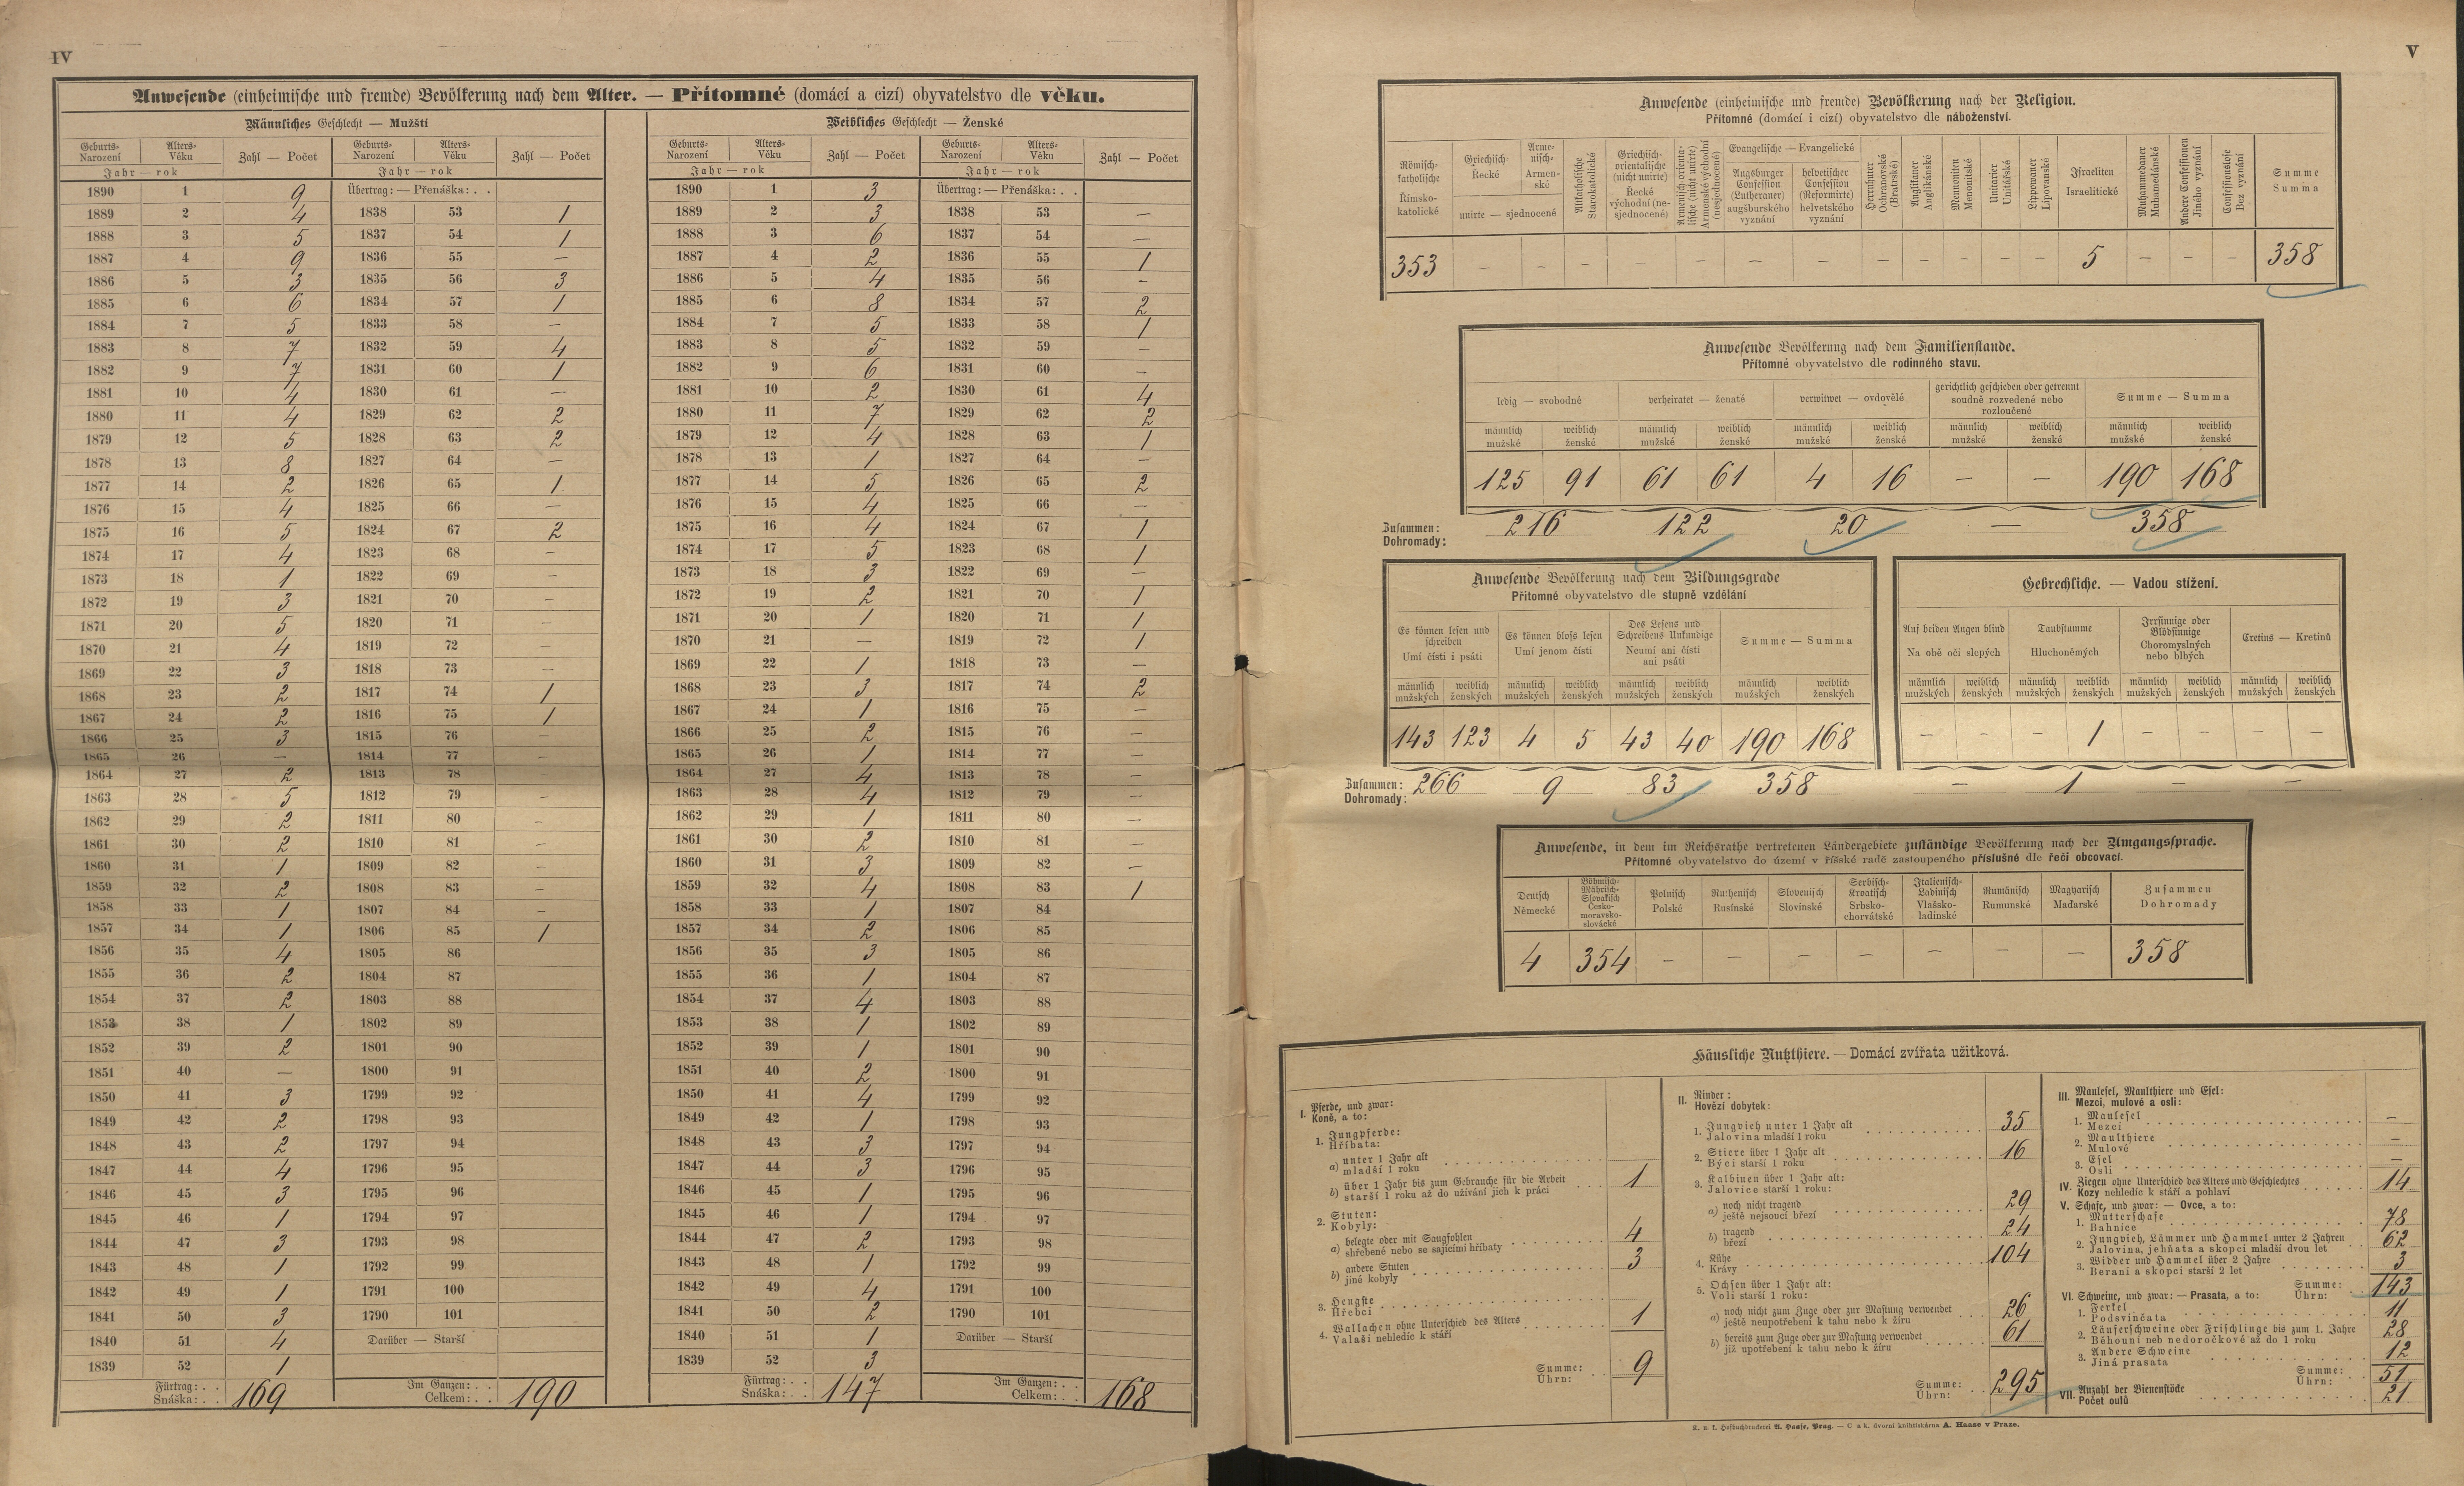 IV
Anwesende (einheimische und fremde) Bevölkerung nach dem Alter. — Přítomné (domácí a cizí) obyvatelstvo dle věku.
Männliches Geschlecht — Mužští
Weibliches Geschlecht — Ženské
Geburts- Alters- Zahl — Počet Geburts- Alters- Zahl — Počet Geburts- Alters- Zahl — Počet Geburts- Alters- Zahl — Počet
Narození Věku Narození Věku Narození Věku Narození Věku
Jahr — rok Jahr — rok Jahr — rok Jahr — rok
1890 1 9 Übertrag: — Přenáška: . . 1890 1 3 Übertrag: — Přenáška: . .
1889 2 4 1838 53 1 1889 2 3 1838 53 —
1888 3 5 1837 54 1 1888 3 6 1837 54 —
1887 4 9 1836 55 — 1887 4 2 1836 55 1
1886 5 3 1835 56 3 1886 5 4 1835 56 -
1885 6 6 1834 57 1 1885 6 8 1834 57 2
1884 7 5 1833 58 — 1884 7 5 1833 58 1
1883 8 7 1832 59 4 1883 8 5 1832 59 —
1882 9 7 1831 60 1 1882 9 6 1831 60 —
1881 10 4 1830 61 — 1881 10 2 1830 61 4
1880 11 4 1829 62 2 1880 11 7 1829 62 2
1879 12 5 1828 63 2 1879 12 4 1828 63 1
1878 13 8 1827 64 — 1878 13 1 1827 64 —
1877 14 2 1826 65 1 1877 14 5 1826 65 2
1876 15 4 1825 66 — 1876 15 4 1825 66 —
1875 16 5 1824 67 2 1875 16 4 1824 67 1
1874 17 4 1823 68 — 1874 17 5 1823 68 1
1873 18 1 1822 69 — 1873 18 3 1822 69 —
1872 19 3 1821 70 — 1872 19 2 1821 70 1
1871 20 5 1820 71 — 1871 20 1 1820 71 1
1870 21 4 1819 72 — 1870 21 — 1819 72 1
1869 22 3 1818 73 — 1869 22 1 1818 73 —
1868 23 2 1817 74 1 1868 23 3 1817 74 2
1867 24 2 1816 75 1 1867 24 1 1816 75 —
1866 25 3 1815 76 — 1866 25 2 1815 76 —
1865 26 — 1814 77 — 1865 26 1 1814 77 —
1864 27 2 1813 78 — 1864 27 4 1813 78 —
1863 28 5 1812 79 — 1863 28 4 1812 79 —
1862 29 2 1811 80 — 1862 29 1 1811 80 —
1861 30 2 1810 81 — 1861 30 2 1810 81 —
1860 31 1 1809 82 — 1860 31 3 1809 82 —
1859 32 2 1808 83 — 1859 32 4 1808 83 1
1858 33 1 1807 84 — 1858 33 1 1807 84
1857 34 1 1806 85 1 1857 34 2 1806 85
1856 35 4 1805 86 1856 35 3 1805 86
1855 36 2 1804 87 1855 36 1 1804 87
1854 37 2 1803 88 1854 37 4 1803 88
1853 38 1 1802 89 1853 38 1 1802 89
1852 39 2 1801 90 1852 39 1 1801 90
1851 40 — 1800 91 1851 40 2 1800 91
1850 41 3 1799 92 1850 41 4 1799 92
1849 42 2 1798 93 1849 42 1 1798 93
1848 43 2 1797 94 1848 43 3 1797 94
1847 44 4 1796 95 1847 44 3 1796 95
1846 45 3 1795 96 1846 45 1 1795 96
1845 46 1 1794 97 1845 46 1 1794 97
1844 47 3 1793 98 1844 47 2 1793 98
1843 48 1 1792 99 1843 48 1 1792 99
1842 49 1 1791 100 1842 49 4 1791 100
1841 50 3 1790 101 1841 50 2 1790 101
1840 51 4 Darüber — Starší 1840 51 1 Darüber — Starší
1839 52 1 1839 52 3
Fürtrag: . . Im Ganzen: . . Fürtrag: . . Im Ganzen: . .
Snáška: . . 169 Celkem: . . 190 Snáška: . . 147 Celkem: . . 168
V
Anwesende (einheimische und fremde) Bevölkerung nach der Religion.
Přítomné (domácí i cizí) obyvatelstvo dle náboženství.
Römisch-katholische
Římsko-katolické
Griechisch-
Řecké
Armenisch-
Armenské
unirte — sjednocené
Altkatholische
Starokatolické
Griechisch-orientalische (nicht unirte)
Řecké východní (nesjednocené)
Armenisch-orientalische (nicht unirte)
Armenské východní (nesjednocené)
Evangelische — Evangelické
Augsburger Confession (Lutheraner)
augšburského vyznání
helvetischer Confession (Reformirte)
helvetského vyznání
Herrnhuter
Ochranovské (Bratrské)
Anglikaner
Anglikánské
Mennoniten
Menonitské
Unitarier
Unitářské
Lippowaner
Lipovanské
Israeliten
Israelitické
Muhammedaner
Muhamedánské
Andere Confessionen
Jiného vyznání
Confessionslose
Bez vyznání
Summe
Summa
353 — — — — — — — — — — — — 5 — — — 358
Anwesende Bevölkerung nach dem Familienstande.
Přítomné obyvatelstvo dle rodinného stavu.
ledig — svobodné
verheiratet — ženaté
verwitwet — ovdovělé
gerichtlich geschieden oder getrennt
soudně rozvedené nebo
rozloučené
Summe — Summa
männlich weiblich männlich weiblich männlich weiblich männlich weiblich männlich weiblich
mužské ženské mužské ženské mužské ženské mužské ženské mužské ženské
125 91 61 61 4 16 — — 190 168
Zusammen:
Dohromady: 216 122 20 — 358
Anwesende Bevölkerung nach dem Bildungsgrade
Přítomné obyvatelstvo dle stupně vzdělání
Es können lesen und
schreiben
Umí čísti i psáti
Es können bloss lesen
Umí jenom čísti
Des Lesens und
Schreibens Unkundige
Neumí ani čísti
ani psáti
Summe — Summa
männlich weiblich männlich weiblich männlich weiblich männlich weiblich
mužských ženských mužských ženských mužských ženských mužských ženských
143 123 4 5 43 40 190 168
Zusammen:
Dohromady: 266 9 83 358
Gebrechliche. — Vadou stížení.
Auf beiden Augen blind
Na obě oči slepých
Taubstumme
Hluchoněmých
Irrsinnige oder
Blödsinnige
Choromyslných
nebo blbých
Cretins — Kretinů
männlich weiblich männlich weiblich männlich weiblich männlich weiblich
mužských ženských mužských ženských mužských ženských mužských ženských
— — — 1 — — — —
— 1 — —
Anwesende, in dem im Reichsrathe vertretenen Ländergebiete zuständige Bevölkerung nach der Umgangssprache.
Přítomné obyvatelstvo do území v říšské radě zastoupeného příslušné dle řeči obcovací.
Deutsch
Německé
Böhmisch-Mährisch-Slovakisch
Česko-moravsko-slovácké
Polnisch
Polské
Ruthenisch
Rusínské
Slovenisch
Slovinské
Serbisch-Kroatisch
Srbsko-chorvátské
Italienisch-Ladinisch
Vlašsko-ladinské
Rumänisch
Rumunské
Magyarisch
Maďarské
Zusammen
Dohromady
4 354 — — — — — — — 358
Häusliche Nutzthiere. — Domácí zvířata užitková.
I. Pferde, und zwar:
Koně, a to:
1. Jungpferde:
Hříbata:
a) unter 1 Jahr alt
mladší 1 roku
b) über 1 Jahr bis zum Gebrauche für die Arbeit
starší 1 roku až do užívání jich k práci 1
2. Stuten:
Kobyly:
a) belegte oder mit Saugfohlen
shřebené nebo se sajícími hříbaty 4
b) andere Stuten
jiné kobyly 3
3. Hengste
Hřebci
4. Wallachen ohne Unterschied des Alters
Valaši nehledíc k stáří 1
Summe:
Úhrn: 9
II. Rinder:
Hovězí dobytek:
1. Jungvieh unter 1 Jahr alt
Jalovina mladší 1 roku 35
2. Stiere über 1 Jahr alt
Býci starší 1 roku 16
3. Kalbinen über 1 Jahr alt:
Jalovice starší 1 roku:
a) noch nicht tragend
ještě nejsoucí březí 29
b) tragend
březí 24
4. Kühe
Krávy 104
5. Ochsen über 1 Jahr alt:
Voli starší 1 roku:
a) noch nicht zum Zuge oder zur Mastung verwendet
ještě neupotřebení k tahu nebo k žíru 26
b) bereits zum Zuge oder zur Mastung verwendet
již upotřebení k tahu nebo k žíru 61
Summe:
Úhrn: 295
III. Maulesel, Maulthiere und Esel:
Mezci, mulové a osli:
1. Maulesel
Mezci —
2. Maulthiere
Mulové —
3. Esel
Osli —
IV. Ziegen ohne Unterschied des Alters und Geschlechtes
Kozy nehledíc k stáří a pohlaví 14
V. Schafe, und zwar: — Ovce, a to:
1. Mutterschafe
Bahnice 78
2. Jungvieh, Lämmer und Hammel unter 2 Jahren
Jalovina, jehňata a skopci mladší dvou let 62
3. Widder und Hammel über 2 Jahre
Berani a skopci starší 2 let 3
Summe:
Úhrn: 143
VI. Schweine, und zwar: — Prasata, a to:
1. Ferkel
Podsvinčata 11
2. Läuferschweine oder Frischlinge bis zum 1. Jahre
Běhouni neb nedoročkové až do 1 roku 28
3. Andere Schweine
Jiná prasata 12
Summe:
Úhrn: 51
VII. Anzahl der Bienenstöcke
Počet oulů 21
K. u. k. Hofbuchdruckerei A. Haase, Prag. — C. a k. dvorní knihtiskárna A. Haase v Praze.